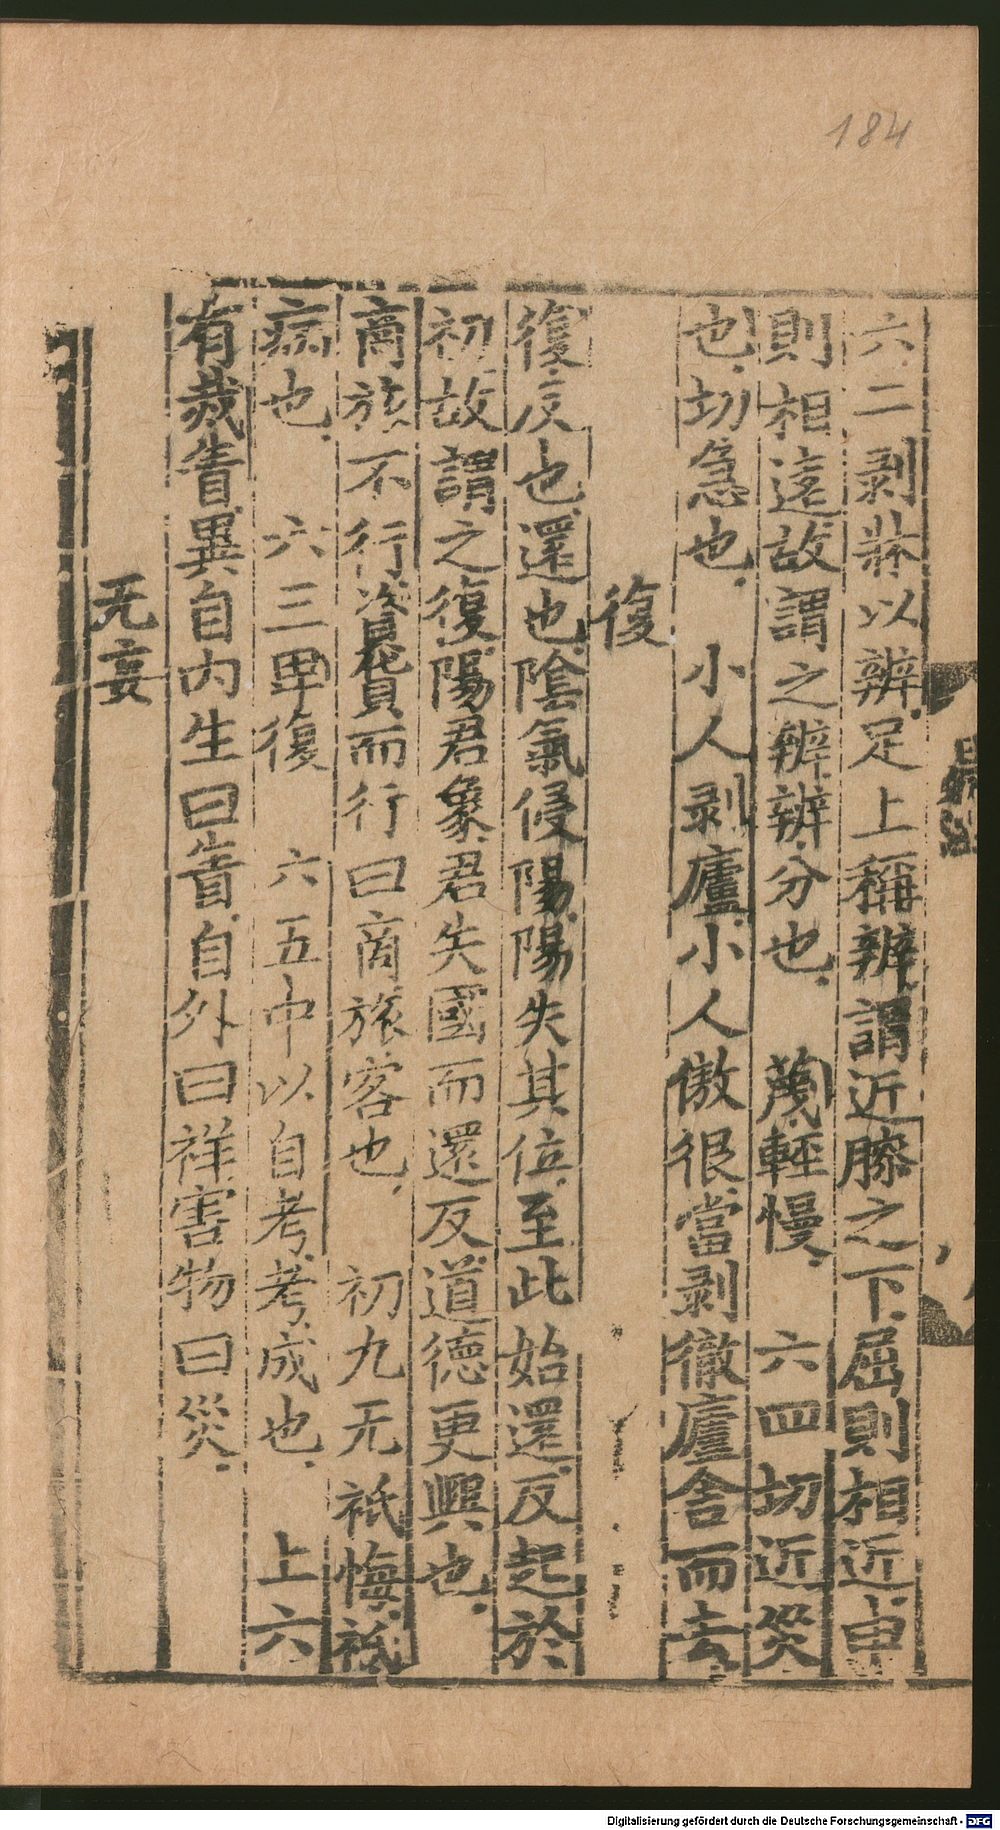 184
六二剥牀以辨足上稱辨謂近膝之下屈則相近申
則相遠故謂之辨辨分也　蔑輕慢　六四切近災
也切急也　小人剥廬小人傲很當剥徹廬舍而去
復
復反也還也陰氣侵陽陽失其位至此始還反起於
初故謂之復陽君象君失國而還反道德更興也
商旅不行資貨而行曰商旅客也　初九无祗悔祗
病也　六三卑復　六五中以自考考成也　上六
有烖眚異自内生曰眚自外曰祥害物曰災
无妄
Digitalisierung gefördert durch die Deutsche Forschungsgemeinschaft - DFG